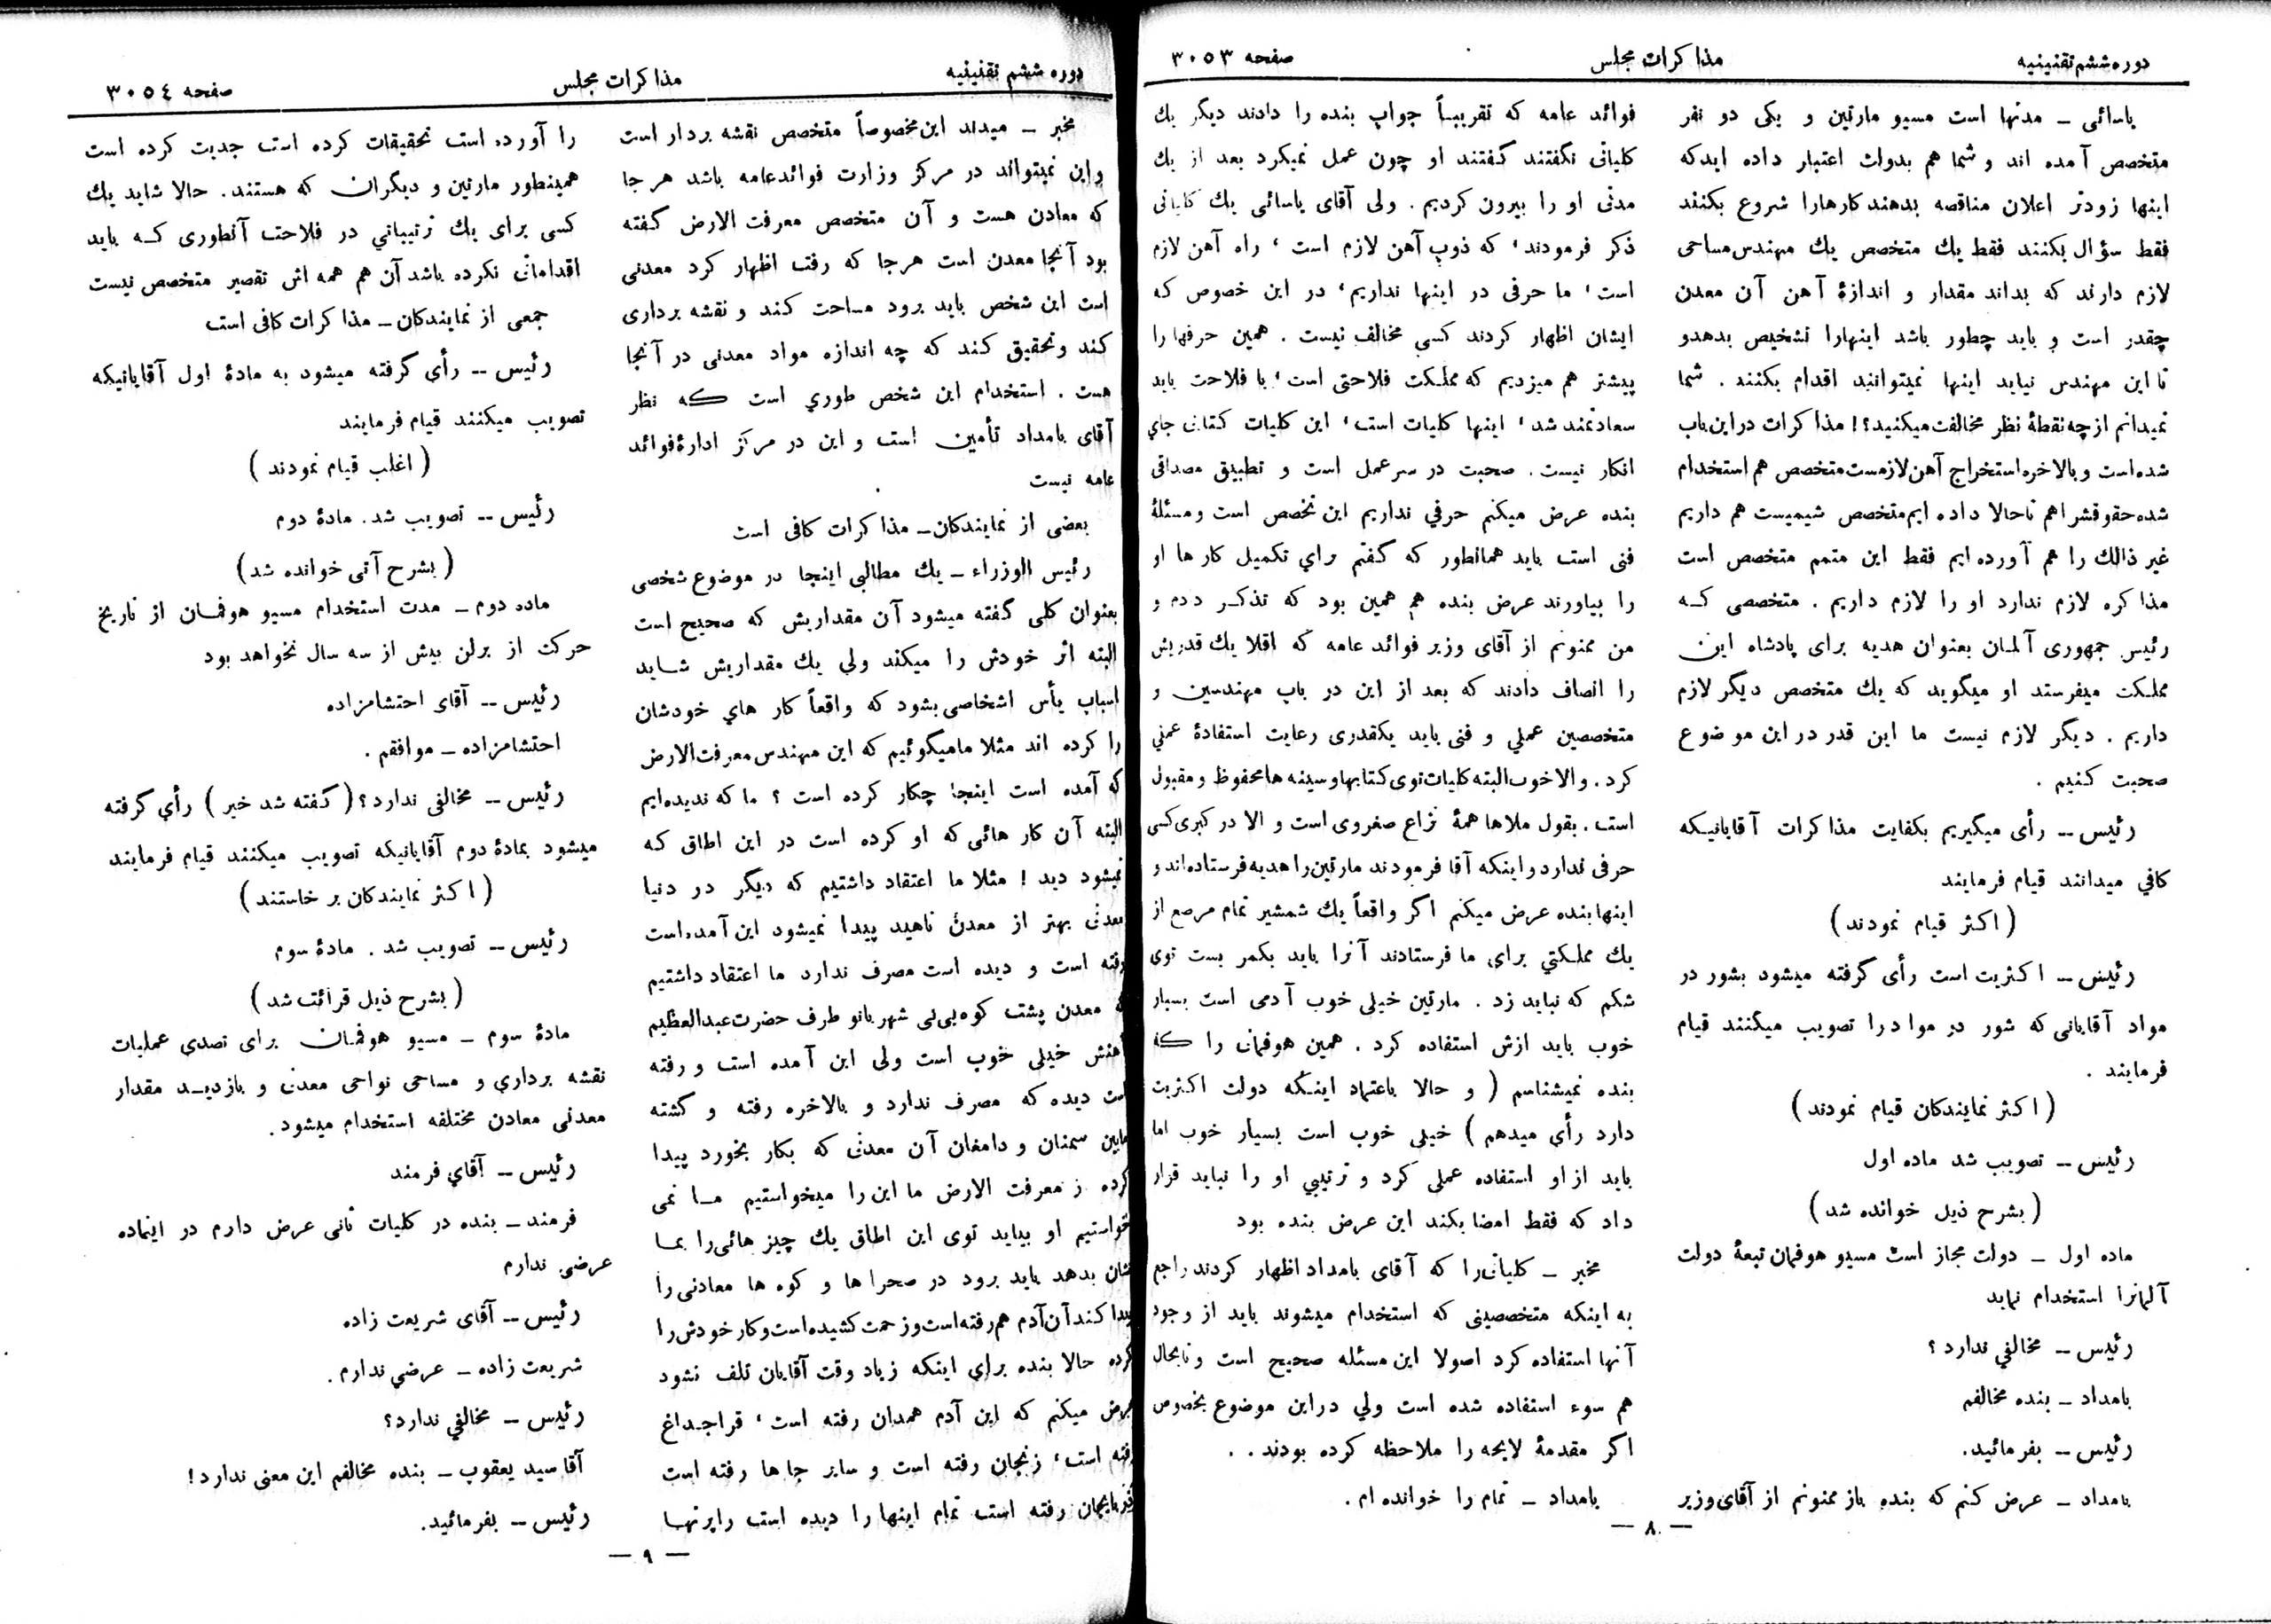 دوره ششم تقنینیه
مذاکرات مجلس
صفحه ۳۰۵۳
یاسائی ــ مدتها است مسیو مارتین و یکی دو نفر
متخصص آمده اند و شما هم بدولت اعتبار داده ایدکه
اینها زودتر اعلان مناقصه بدهند کارهارا شروع بکنند
فقط سؤال بکنند فقط یك متخصص یك مهندس مساحی
لازم دارند که بداند مقدار و اندازهٔ آهن آن معدن
چقدر است و باید چطور باشد اینهارا تشخیص بدهدو
تا این مهندس نیاید اینها نمیتوانند اقدام بکنند . شما
نمیدانم از چه نقطهٔ نظر مخالفت میکنید؟! مذاکرات دراین باب
شده است و بالاخره استخراج آهن لازمست متخصص هم استخدام
شده حقوقشراهم تاحالا داده ایم متخصص شیمیست هم داریم
غیر ذالك را هم آورده ایم فقط این متمم متخصص است
مذاکره لازم ندارد او را لازم داریم . متخصصی کـه
رئیس جمهوری آلمان بعنوان هدیه برای پادشاه این
مملکت میفرستد او میگوید که یك متخصص دیگر لازم
داریم . دیگر لازم نیست ما این قدر در این موضوع
صحبت کنیم .
رئیس ــ رأی میگیریم بکفایت مذاکرات آقایانیکه
کافي میدانند قیام فرمایند
( اکثر قیام نمودند )
رئیس ــ اکثریت است رأی گرفته میشود بشور در
مواد آقایانی که شور در مواد را تصویب میکنند قیام
فرمایند .
( اکثر نمایندکان قیام نمودند )
رئیس ــ تصویب شد ماده اول
( بشرح ذیل خوانده شد )
ماده اول ــ دولت مجاز است مسیو هوفمان تبعهٔ دولت
آلمانرا استخدام نماید
رئیس ــ مخالفي ندارد ؟
بامداد ــ بنده مخالفم
رئیس ــ بفرمائید.
بامداد ــ عرض کنم که بنده باز ممنونم از آقای وزیر
فوائد عامه که تقریبـاً جواب بنده را دادند دیگر یك
کلیاتی نگفتند گفتند او چون عمل نمیکرد بعد از یك
مدتی او را بیرون کردیم . ولی آقای یاسائی یك کلیاتی
ذکر فرمودند ، که ذوب آهن لازم است ، راه آهن لازم
است ، ما حرفی در اینها نداریم ، در این خصوص که
ایشان اظهار کردند کسي مخالف نیست . همین حرفها را
پیشتر هم میزدیم که مملکت فلاحتی است ، با فلاحت باید
سعادتمند شد ، اینها کلیات است ، این کلیات کتابی جاي
انکار نیست . صحبت در سر عمل است و تطبیق مصداقی
بنده عرض میکنم حرفي نداریم این تخصص است و مسئلهٔ
فنی است باید همانطور که گفتم براي تکمیل کار ها او
را بیاورند عرض بنده هم همین بود که تذکـر ددم و
من ممنونم از آقای وزیر فوائد عامه که اقلا یك قدریش
را انصاف دادند که بعد از این در باب مهندسین و
متخصصین عملي و فنی باید یکقدری رعایت استفادهٔ عملي
کرد . والا خوب البته کلیات توی کتابها و سینه ها محفوظ و مقبول
است . بقول ملاها همهٔ نزاع صغروی است و الا در کبری کسی
حرفی ندارد و اینکه آقا فرمودند مارتین را هدیه فرستاده اند و
اینها بنده عرض میکنم اگر واقعاً یك شمشیر تمام مرصع از
یك مملکتي برای ما فرستادند آنرا باید بکمر بست توی
شکم که نباید زد . مارتین خیلی خوب آدمی است بسیار
خوب باید ازش استفاده کرد . همین هوفمان را که
بنده نمیشناسم ( و حالا باعتماد اینکه دولت اکثریت
دارد رأي میدهم ) خیلی خوب است بسیار خوب اما
باید از او استفاده عملی کرد و ترتیبي او را نباید قرار
داد که فقط امضا بکند این عرض بنده بود
مخبر ــ کلیاتی را که آقای بامداد اظهار کردند راجع
به اینکه متخصصینی که استخدام میشوند باید از وجود
آنها استفاده کرد اصولا این مسئله صحیح است و تابحال
هم سوء استفاده شده است ولي دراین موضوع بخصوص
اگر مقدمهٔ لایحه را ملاحظه کرده بودند . .
بامداد ــ تمام را خوانده ام .
— ۸ —
دوره ششم تقنینیه
مذاکرات مجلس
صفحه ۳۰۵٤
مخبر ــ میدند این مخصوصاً متخصص نقشه بردار است
واین نمیتواند در مرکز وزارت فوائدعامه باشد هر جا
که معادن هست و آن متخصص معرفت الارض گفته
بود آنجا معدن است هرجا که رفت اظهار کرد معدنی
است این شخص باید برود مساحت کند و نقشه برداری
کند و تحقیق کند که چه اندازه مواد معدنی در آنجا
هست . استخدام این شخص طوري است که نظر
آقای بامداد تأمین است و این در مرکز ادارهٔ فوائد
عامه نیست
بعضی از نمایندکان ــ مذاکرات کافی است
رئیس الوزراء ــ یك مطالبی اینجا در موضوع شخصی
بعنوان کلی گفته میشود آن مقداریش که صحیح است
البته اثر خودش را میکند ولي یك مقداریش شـاید
اسباب یأس اشخاصی بشود که واقعاً کار هاي خودشان
را کرده اند مثلا مامیگوئیم که این مهندس معرفت الارض
که آمده است اینجا چکار کرده است ؟ ما که ندیده ایم
البته آن کار هائی که او کرده است در این اطاق که
نمیشود دید ! مثلا ما اعتقاد داشتیم که دیگر در دنیا
معدنی بهتر از معدن ناهید پیدا نمیشود این آمده است
رفته است و دیده است مصرف ندارد ما اعتقاد داشتیم
که معدن پشت کوه بی بی شهربانو طرف حضرت عبدالعظیم
آهنش خیلی خوب است ولی این آمده است و رفته
است دیده که مصرف ندارد و بالاخره رفته و گشته
مابین سمنان و دامغان آن معدنی که بکار بخورد پیدا
کرده ز معرفت الارض ما این را میخواستیم مـا نمی
خواستیم او بیاید توی این اطاق یك چیز هائی را بمـا
نشان بدهد باید برود در صحرا ها و کوه ها معادنی را
پیدا کند آن آدم هم رفته است و زحمت کشیده است و کار خودش را
کرده حالا بنده برای اینکه زیاد وقت آقایان تلف نشود
عرض میکنم که این آدم همدان رفته است ، قراجـداغ
رفته است ، زنجان رفته است و سایر جا ها رفته است
آذربایجان رفته است تمام اینها را دیده است راپرتهـا
را آورده است تحقیقات کرده است جدیت کرده است
همینطور مارتین و دیگران که هستند . حالا شاید یك
کسی برای یك ترتیباتي در فلاحت آنطوری کـه باید
اقداماتی نکرده باشد آن هم همه اش تقصیر متخصص نیست
جمعی از نمایندکان ــ مذاکرات کافی است
رئیس ــ رأي گرفته میشود به مادهٔ اول آقایانیکه
تصویب میکنند قیام فرمایند
( اغلب قیام نمودند )
رئیس ــ تصویب شد . مادهٔ دوم
( بشرح آتی خوانده شد )
ماده دوم ــ مدت استخدام مسیو هوفمان از تاریخ
حرکت از برلن بیش از سه سال نخواهد بود
رئیس ــ آقای احتشامزاده
احتشامزاده ــ موافقم .
رئیس ــ مخالفی ندارد ؟ ( گفته شد خیر ) رأي گرفته
میشود بمادهٔ دوم آقایانیکه تصویب میکنند قیام فرمایند
( اکثر نمایندکان بر خاستند )
رئیس ــ تصویب شد . مادهٔ سوم
( بشرح ذیل قرائت شد )
مادهٔ سوم ــ مسیو هوفمان برای تصدي عملیات
نقشه برداري و مساحی نواحی معدنی و بازدیـد مقدار
معدنی معادن مختلفه استخدام میشود.
رئیس ــ آقاي فرمند
فرمند ــ بنده در کلیات ثانی عرض دارم در اینماده
عرضي ندارم
رئیس ــ آقای شریعت زاده
شریعت زاده ــ عرضي ندارم .
رئیس ــ مخالفي ندارد؟
آقا سید یعقوب ــ بنده مخالفم این معنی ندارد!
رئیس ــ بفرمائید.
— ۹ —